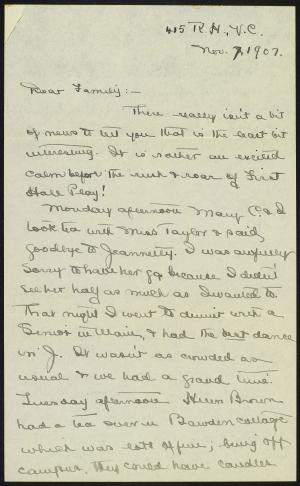 415 R.H., V.C.
Nov. 7, 1907.
Dear Family:—
There really isn't a bit
of news to tell you that is the least bit
interesting. It is rather an excited
calm before the rush & roar of First
Hall Play!
Monday afternoon Mary C. & I
took tea with Miss Taylor & said,
goodbye to Jeannette. I was awfully
sorry to have her go because I didn't
see her half as much as I wanted to
That night I went to dinner with a
Senior in Main, & had the best dance
in J. It wasn't as crowded as
usual & we had a grand time.
Tuesday afternoon Helen Brown
had a tea over in Bawden cottage
which was lots of fun; being off
campus, they could have candles